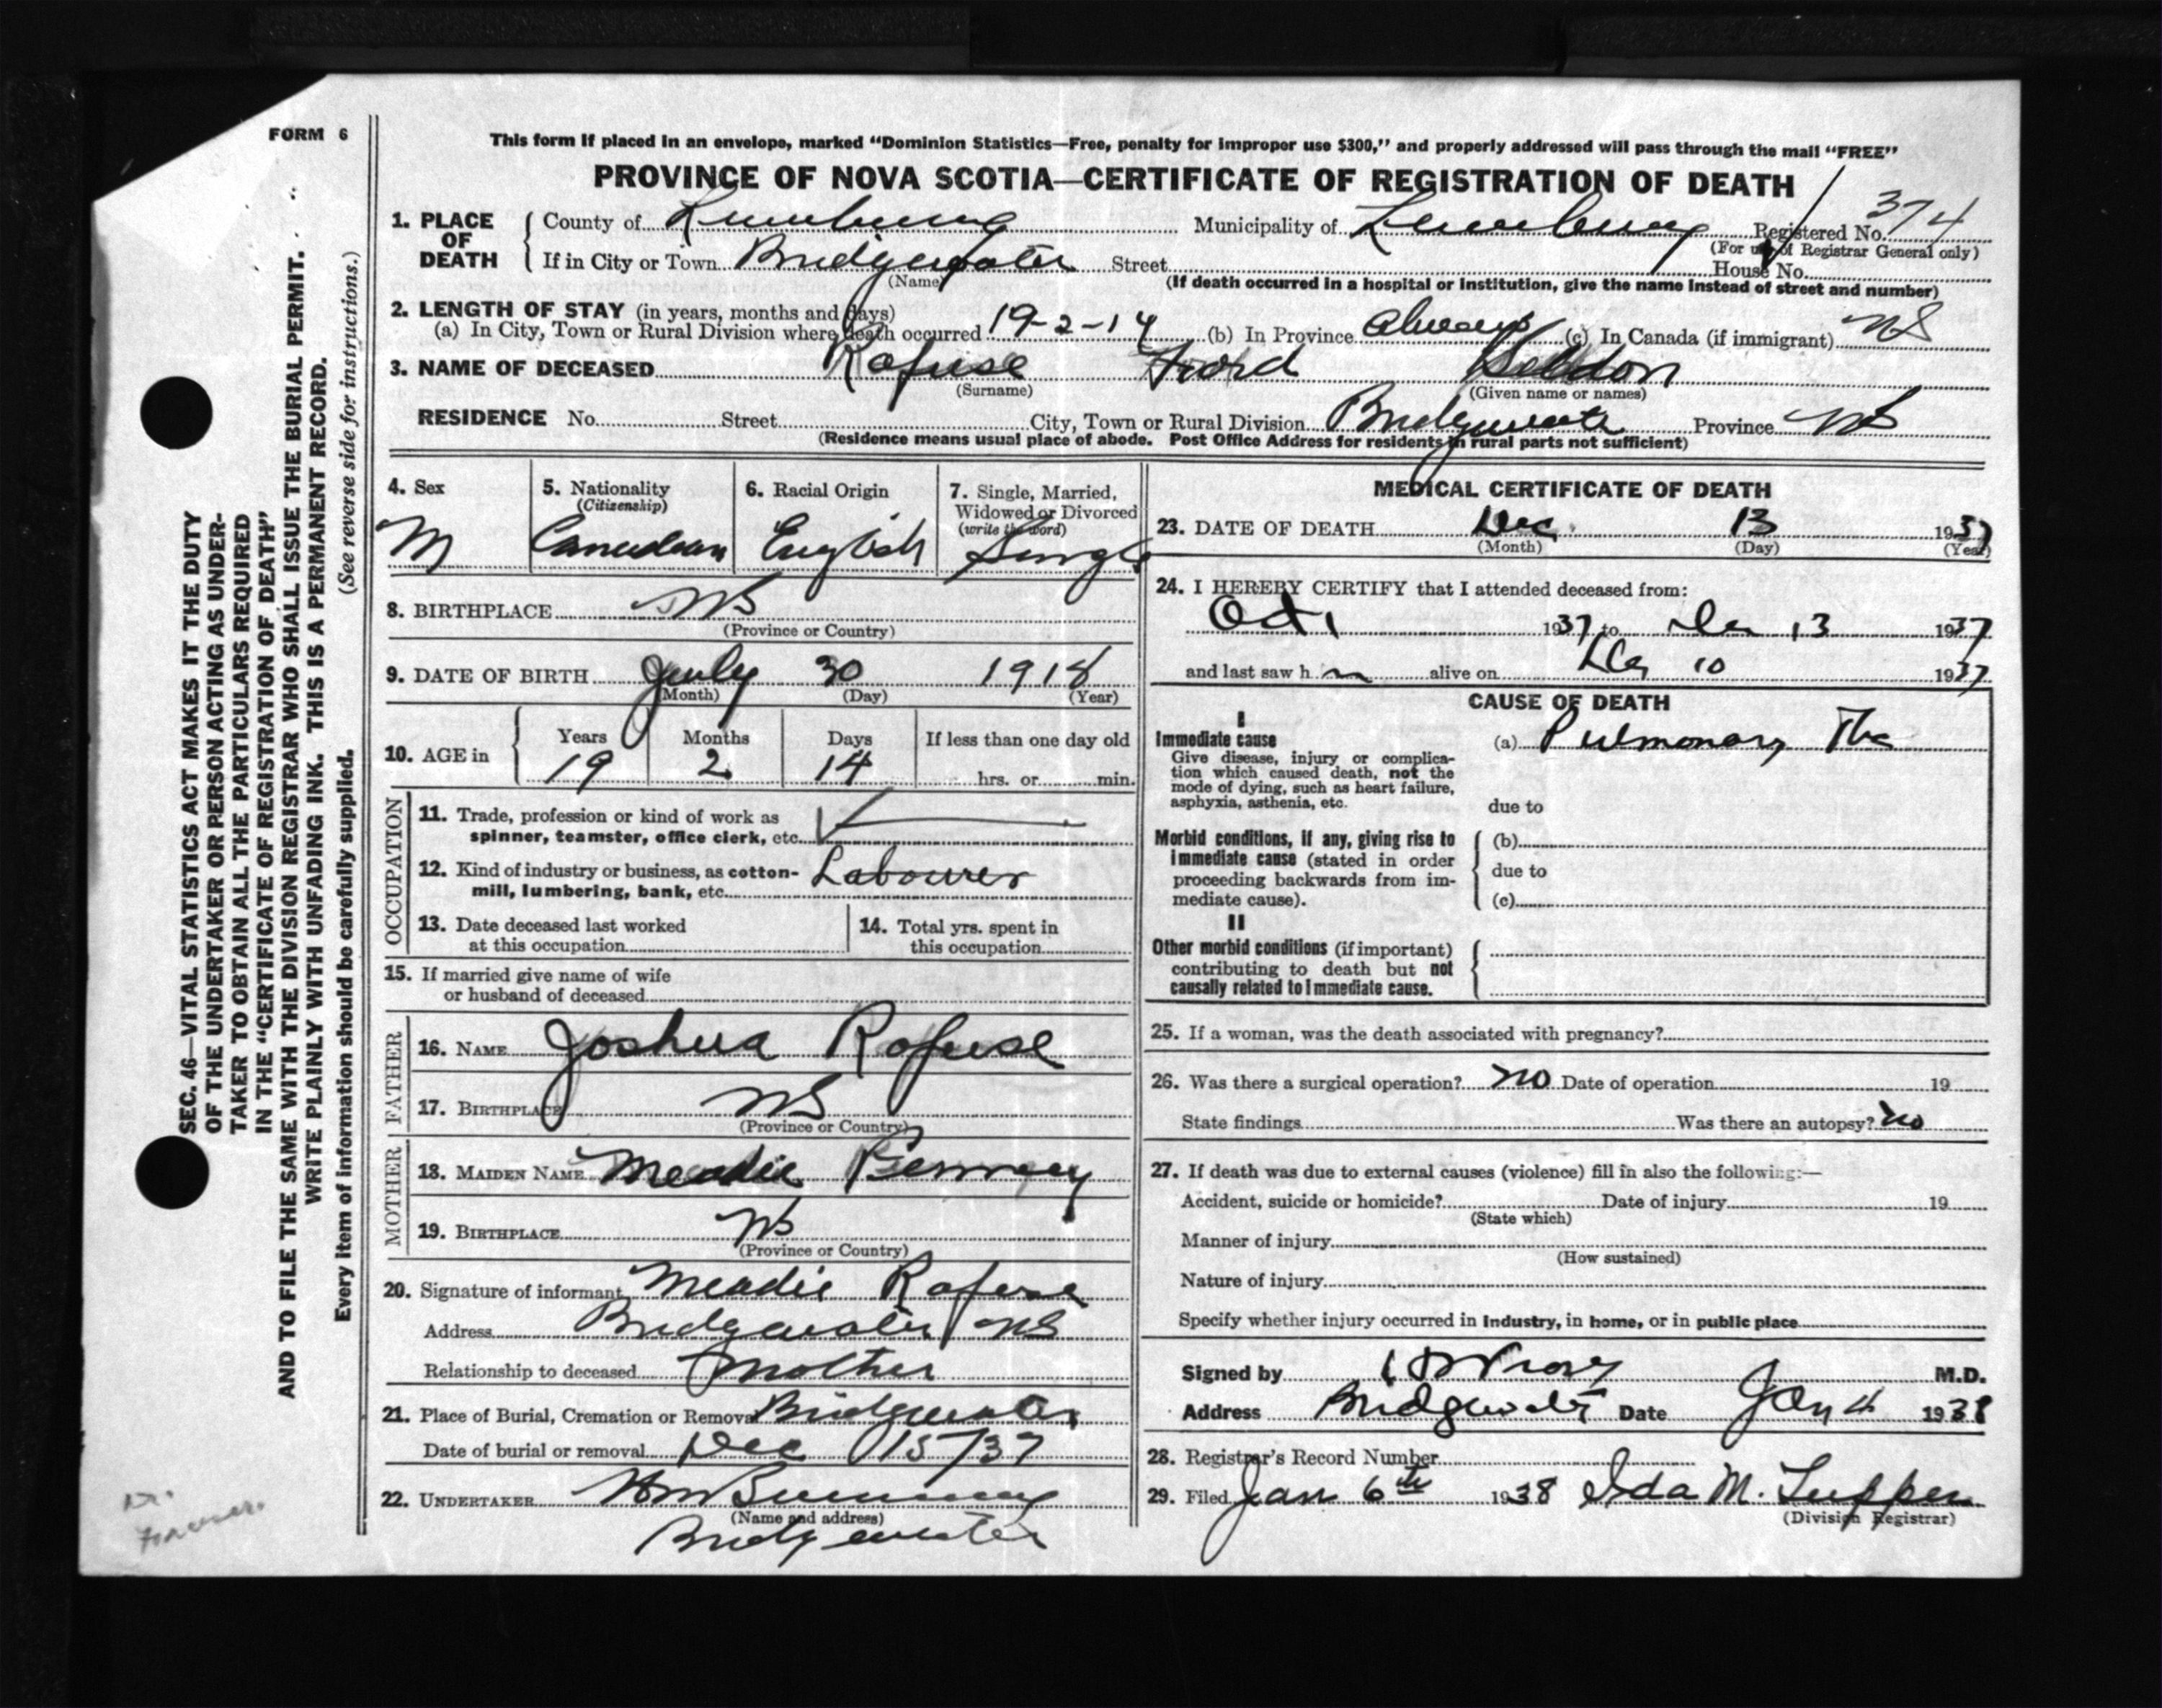 FORM 6
This form if placed in an envelope, marked "Dominion Statistics—Free, penalty for improper use $300," and properly addressed will pass through the mail "FREE"
PROVINCE OF NOVA SCOTIA—CERTIFICATE OF REGISTRATION OF DEATH
1. PLACE OF DEATH County of Lunenburg Municipality of Lunenburg Registered No. 374
(For use of Registrar General only)
If in City or Town Bridgewater Street House No.
(Name) (If death occurred in a hospital or institution, give the name instead of street and number)
2. LENGTH OF STAY (in years, months and days)
(a) In City, Town or Rural Division where death occurred 19-2-14 (b) In Province always (c) In Canada (if immigrant) NS
3. NAME OF DECEASED Rafuse Ford Seldon
(Surname) (Given name or names)
RESIDENCE No. Street City, Town or Rural Division Bridgewater Province NS
(Residence means usual place of abode. Post Office Address for residents in rural parts not sufficient)
4. Sex 5. Nationality 6. Racial Origin 7. Single, Married,
(Citizenship) Widowed or Divorced
(write the word)
M Canadian English Single
8. BIRTHPLACE NS
(Province or Country)
9. DATE OF BIRTH July 30 1918
(Month) (Day) (Year)
10. AGE in Years Months Days If less than one day old
19 2 14 hrs. or min.
OCCUPATION
11. Trade, profession or kind of work as
spinner, teamster, office clerk, etc.
12. Kind of industry or business, as cotton-
mill, lumbering, bank, etc. Labourer
13. Date deceased last worked
at this occupation
14. Total yrs. spent in
this occupation
15. If married give name of wife
or husband of deceased
FATHER
16. NAME Joshua Rafuse
17. BIRTHPLACE NS
(Province or Country)
MOTHER
18. MAIDEN NAME Meadie
19. BIRTHPLACE NS
(Province or Country)
20. Signature of informant Meadie Rafuse
Address Bridgewater NS
Relationship to deceased Mother
21. Place of Burial, Cremation or Removal Bridgewater
Date of burial or removal Dec 15/37
22. UNDERTAKER Wm
(Name and address)
Bridgewater
MEDICAL CERTIFICATE OF DEATH
23. DATE OF DEATH Dec. 13 1937
(Month) (Day) (Year)
24. I HEREBY CERTIFY that I attended deceased from:
Oct 1 1937 to Dec 13 1937
and last saw h m alive on Dec 10 1937
CAUSE OF DEATH
I
Immediate cause
Give disease, injury or complica-
tion which caused death, not the
mode of dying, such as heart failure,
asphyxia, asthenia, etc.
(a) Pulmonary Tbc
due to
Morbid conditions, if any, giving rise to
immediate cause (stated in order
proceeding backwards from im-
mediate cause).
(b)
due to
(c)
II
Other morbid conditions (if important)
contributing to death but not
causally related to immediate cause.
25. If a woman, was the death associated with pregnancy?
26. Was there a surgical operation? no Date of operation 19
State findings Was there an autopsy? no
27. If death was due to external causes (violence) fill in also the following:—
Accident, suicide or homicide? Date of injury 19
(State which)
Manner of injury
(How sustained)
Nature of injury
Specify whether injury occurred in industry, in home, or in public place
Signed by M.D.
Address Bridgewater Date Jan 4 1938
28. Registrar's Record Number
29. Filed Jan 6th 1938 Ida M. Tupper
(Division Registrar)
SEC. 46—VITAL STATISTICS ACT MAKES IT THE DUTY
OF THE UNDERTAKER OR PERSON ACTING AS UNDER-
TAKER TO OBTAIN ALL THE PARTICULARS REQUIRED
IN THE "CERTIFICATE OF REGISTRATION OF DEATH"
AND TO FILE THE SAME WITH THE DIVISION REGISTRAR WHO SHALL ISSUE THE BURIAL PERMIT.
WRITE PLAINLY WITH UNFADING INK. THIS IS A PERMANENT RECORD.
Every item of information should be carefully supplied. (See reverse side for instructions.)